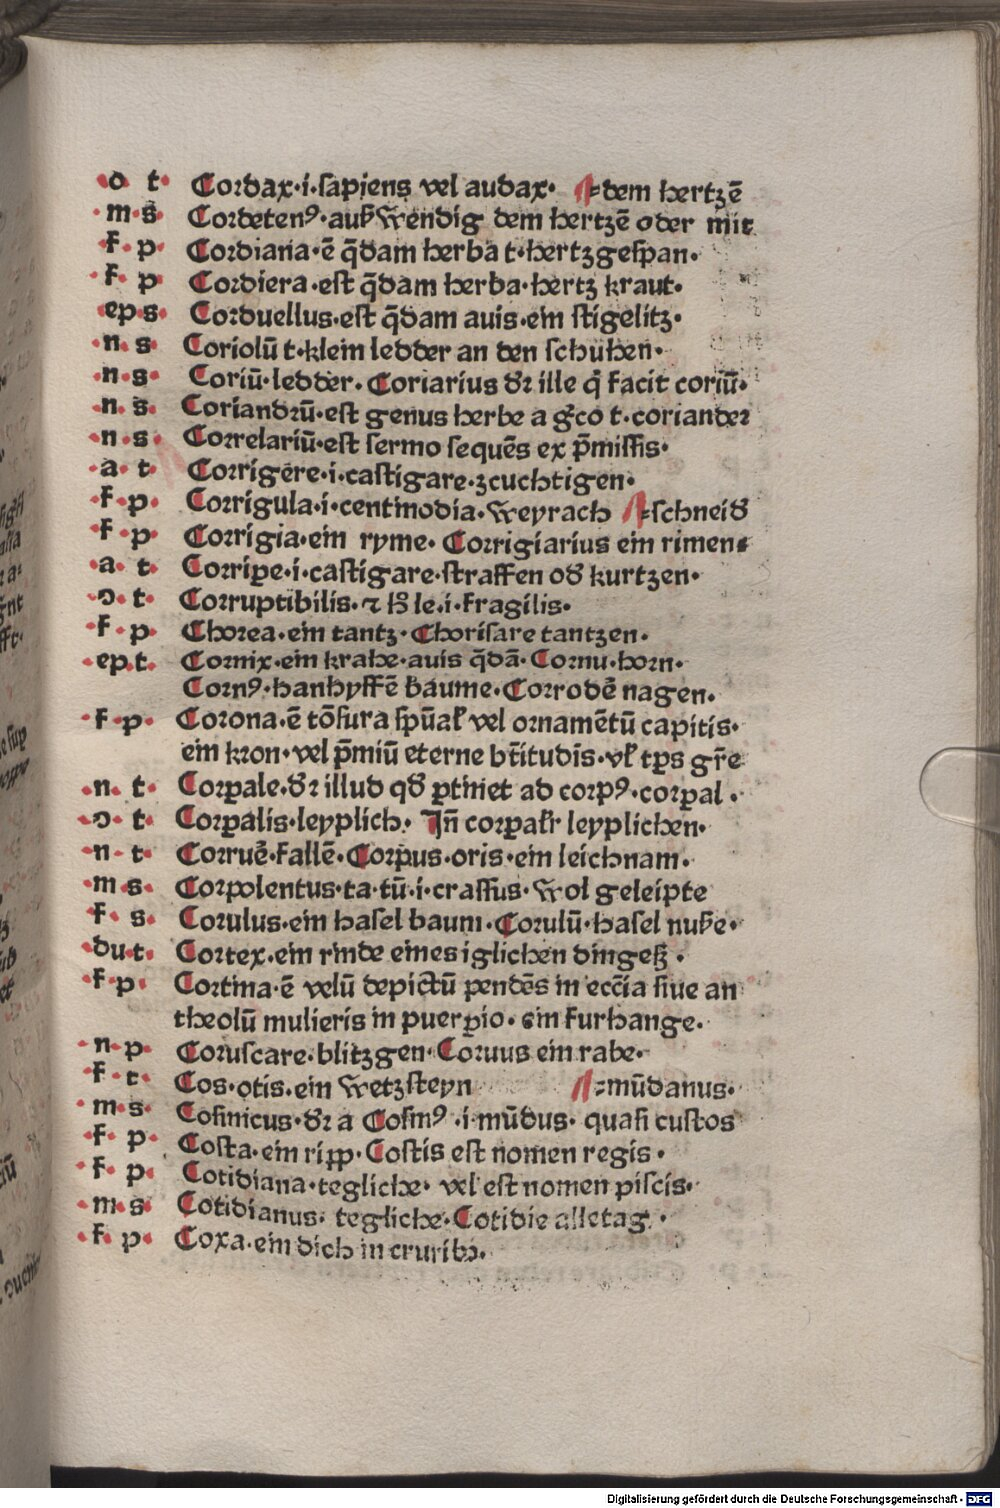 ·o t· Cordax·i·sapiens vel audax· ⸗dem hertzē
·m·s· Cordetenꝰ·auß wendig dem hertzē oder mit
·f· p· Cordiana·ē q̄dam herba t·hertzgespan·
·f· p Cordiera·est q̄dam herba·hertz kraut·
·ep·s· Corduellus·est q̄dam auis·ein stigelitz·
·n· s· Coriolū t·klein ledder an den schuhen·
·n·s· Coriū·ledder·Coriarius dr̄ ille q̄ facit coriū·
·n·s· Coriandrū·est genus herbe a gͤco t·coriander
·n·s· Correlariū·est sermo sequēs ex p̄missis·
·a· t· Corrigere·i·castigare·zcuchtigen·
·f·p· Corrigula·i·centinodia·weyrach ⸗schneid̄
·f·p· Corrigia·ein ryme·Corrigiarius ein rimen⸗
·a· t· Corriꝑe·i·castigare·straffen od̄ kurtzen·
·ɔ·t· Corruptibilis·⁊ ħ le·i·fragilis·
·f·p· Chorea·ein tantz·Chorisare tantzen·
·ep.t· Cornix·ein krahe·auis q̄dā·Cornu·horn·
Cornꝰ·hanhyffē baume·Corrodē nagen·
·f·p· Corona·ē tōsura sp̄ual' vel ornamētū capitis·
ein kron·vel p̄miū eterne btītudīs·vl' tꝑs gr̄e
·n· t· Corꝑale·dr̄ illud qd̄ ꝑtinet ad corpꝰ·corpal·
·ɔ· t· Corꝑalis·leyplich·Jn̄ corꝑalr̄ leyplichen·
·n·t· Corruē·fallē·Corpus·oris·ein leichnam·
·m s· Corpolentus·ta·tū·i·crassus·wol geleipte
·f· s· Corulus·ein hasel baum·Corulū·hasel nuße·
·du·t· Cortex·ein rinde eines iglichen dingeß·
·f·p· Cortina·ē velū depictū pendēs in ecc̄ia siue an
theolū mulieris in puerꝑio·ein furhange·
·n·p· Coruscare·blitzgen·Coruus ein rabe·
·f·t· Cos·otis·ein wetzsteyn ⸗mūdanus·
·m·s· Cosinicus·dr̄ a Cosmꝰ·i·mūdus·quasi custos
·f· p· Costa·ein riꝑp·Costis est nomen regis·
·f·p· Cotidiana·tegliche·vel est nomen piscis·
·m·s· Cotidianus·tegliche·Cotidie alletag·
·f·p· Coxa·ein dich in crurib·
Digitalisierung gefördert durch die Deutsche Forschungsgemeinschaft · DFG